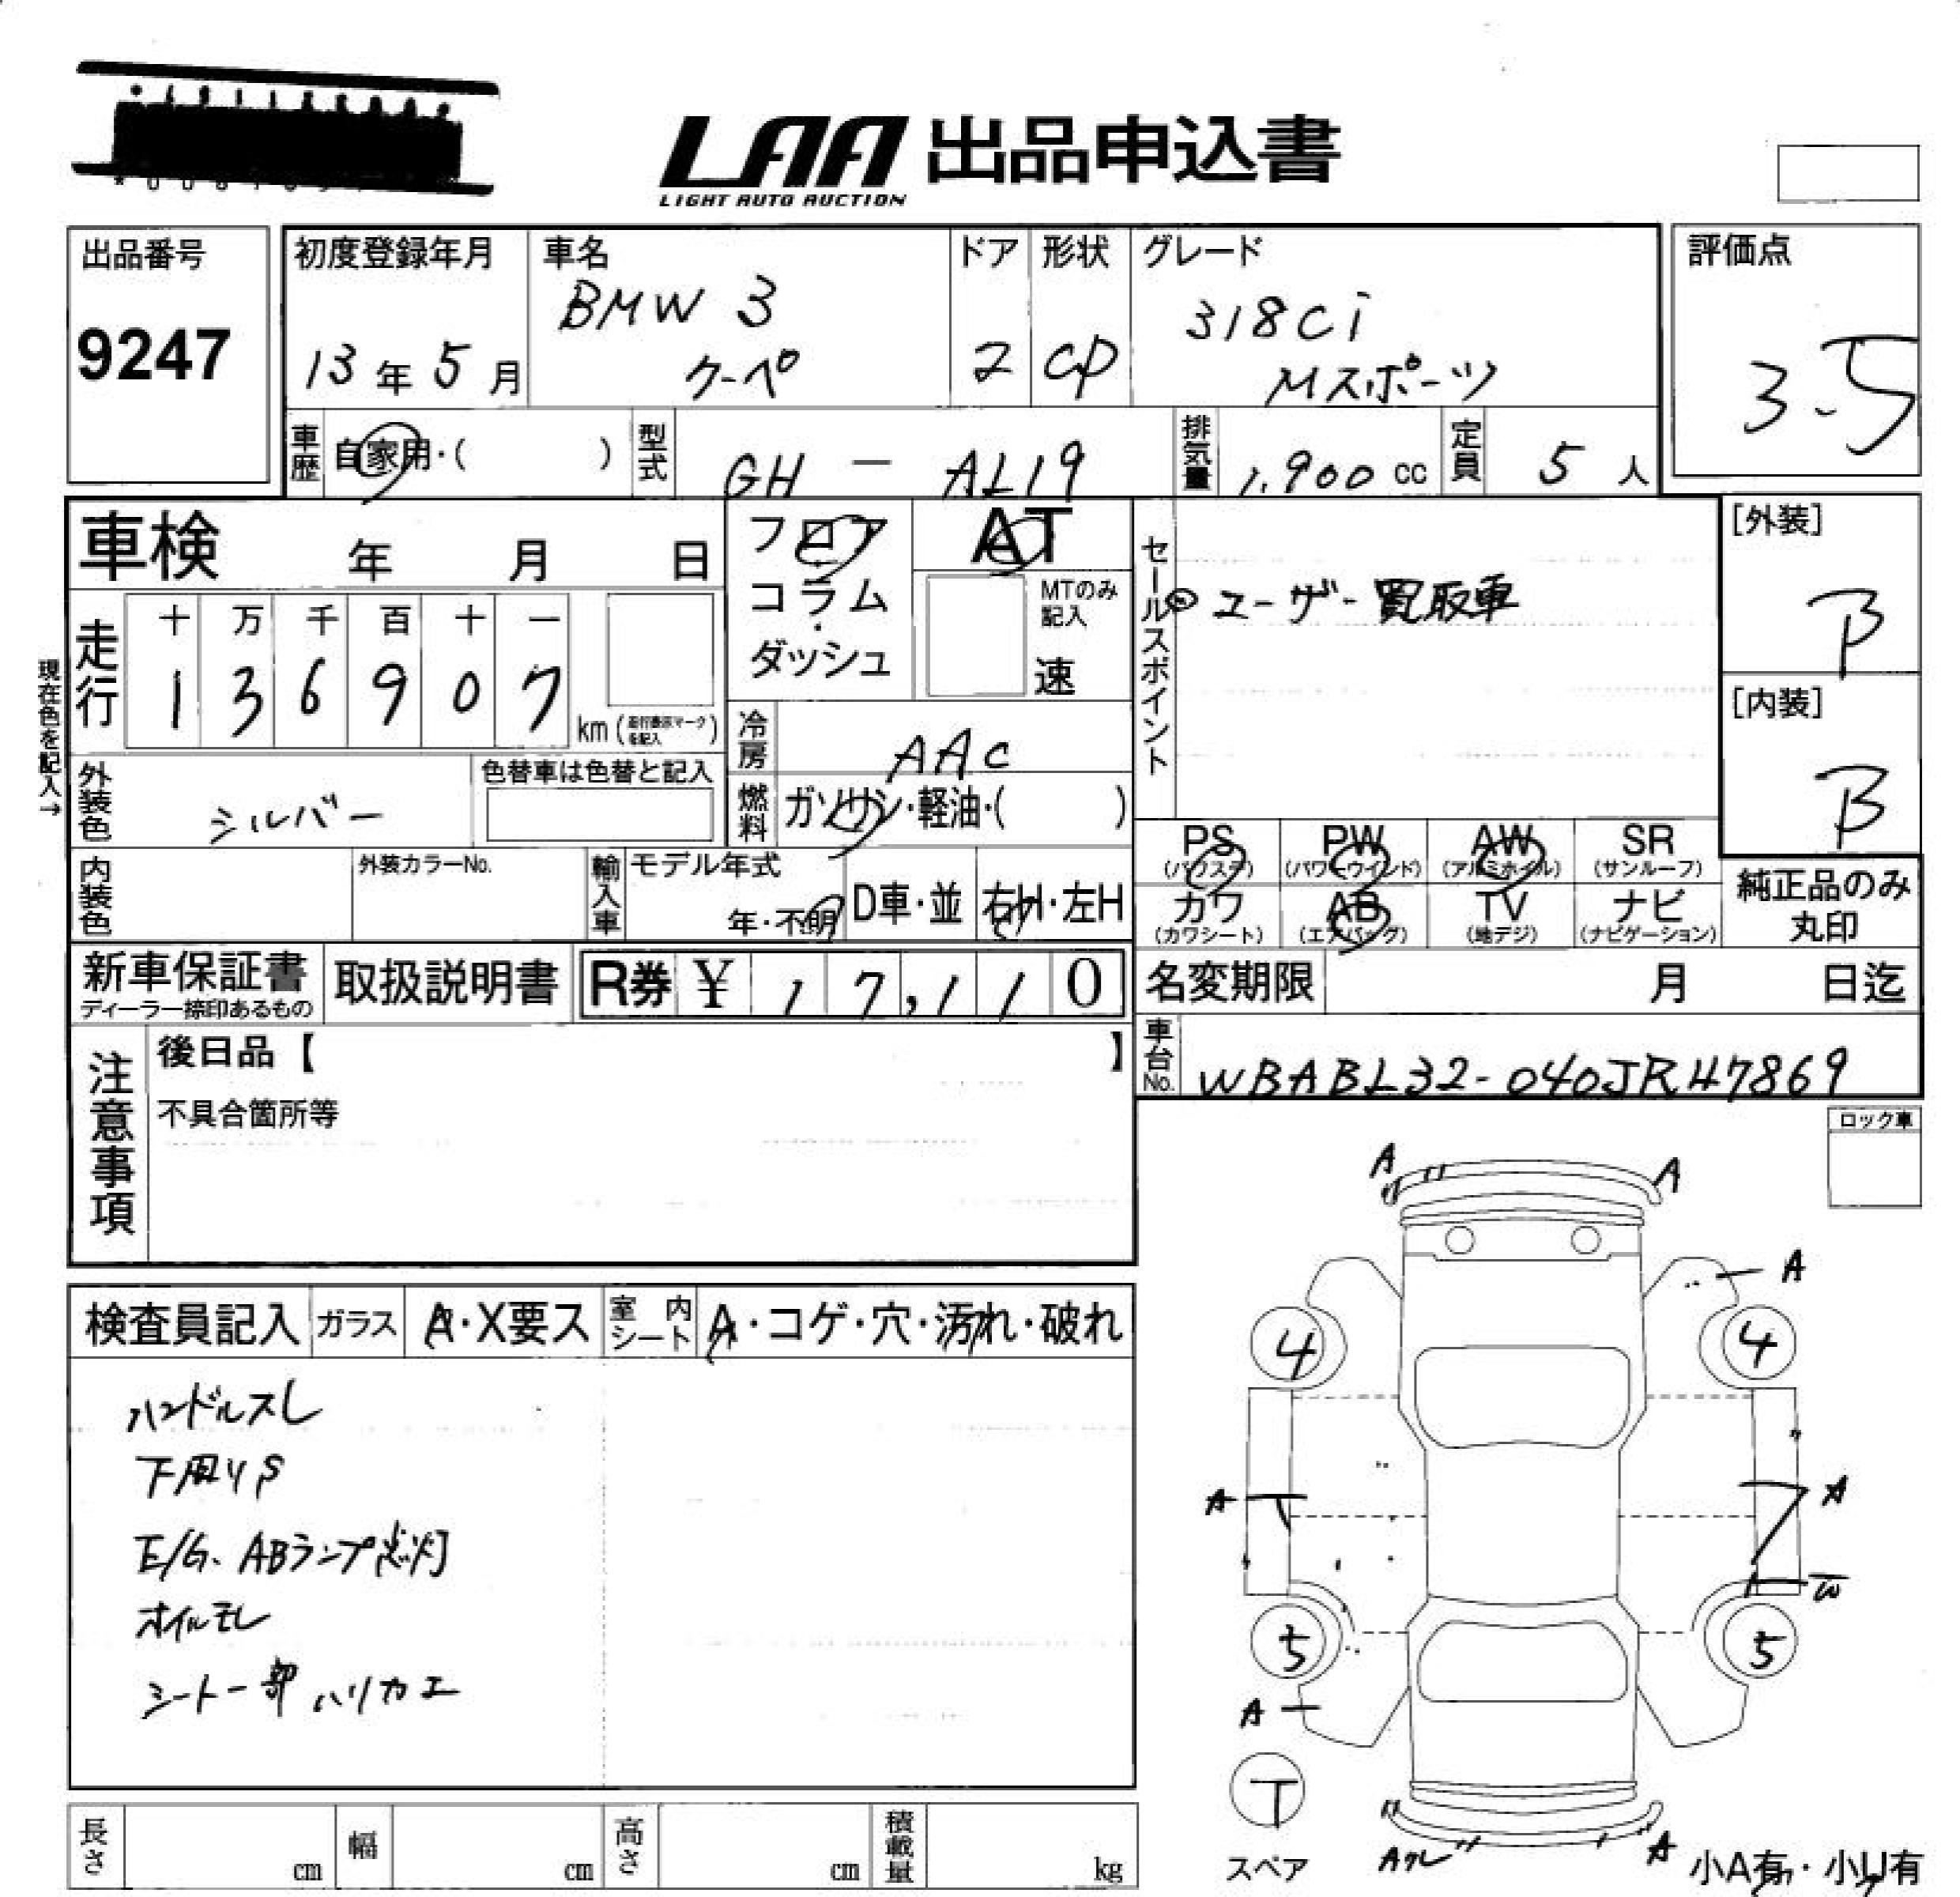 LAA 出品申込書
LIGHT AUTO AUCTION
出品番号
9247
初度登録年月
13年5月
車名
BMW 3
クーペ
ドア
2
形状
CP
グレード
318Ci
Mスポーツ
評価点
3.5
車歴 自家用・( )
型式 GH - AL19
排気量 1,900 cc
定員 5 人
車検 年 月 日
フロア
コラム
・
ダッシュ
AT
MTのみ
記入
速
セールスポイント
◎ユーザー買取車
[外装]
B
[内装]
B
現在色を記入→
走行
十 万 千 百 十 一
1 3 6 9 0 7
km (走行表示マークを記入)
冷房 AAC
燃料 ガソリン・軽油・( )
外装色 シルバー
色替車は色替と記入
PS (パワステ)
PW (パワーウインド)
AW (アルミホイル)
SR (サンルーフ)
カワ (カワシート)
AB (エアバッグ)
TV (地デジ)
ナビ (ナビゲーション)
純正品のみ
丸印
内装色
外装カラーNo.
輸入車
モデル年式
年・不明
D車・並
右H・左H
新車保証書
ディーラー捺印あるもの
取扱説明書
R券 ¥ 17,110
名変期限 月 日迄
車台No. WBABL32-040JR47869
注意事項
後日品【 】
不具合箇所等
ロック車
検査員記入
ガラス A・X要ス
室内シート A・コゲ・穴・汚れ・破れ
ハンドルスレ
下廻りS
E/G、ABランプ点灯
オイルモレ
シート一部ハリカエ
A A
A
4 4
A A
W
5 5
A
T
スペア
Aワレ A
小A有・小U有
長さ cm
幅 cm
高さ cm
積載量 kg